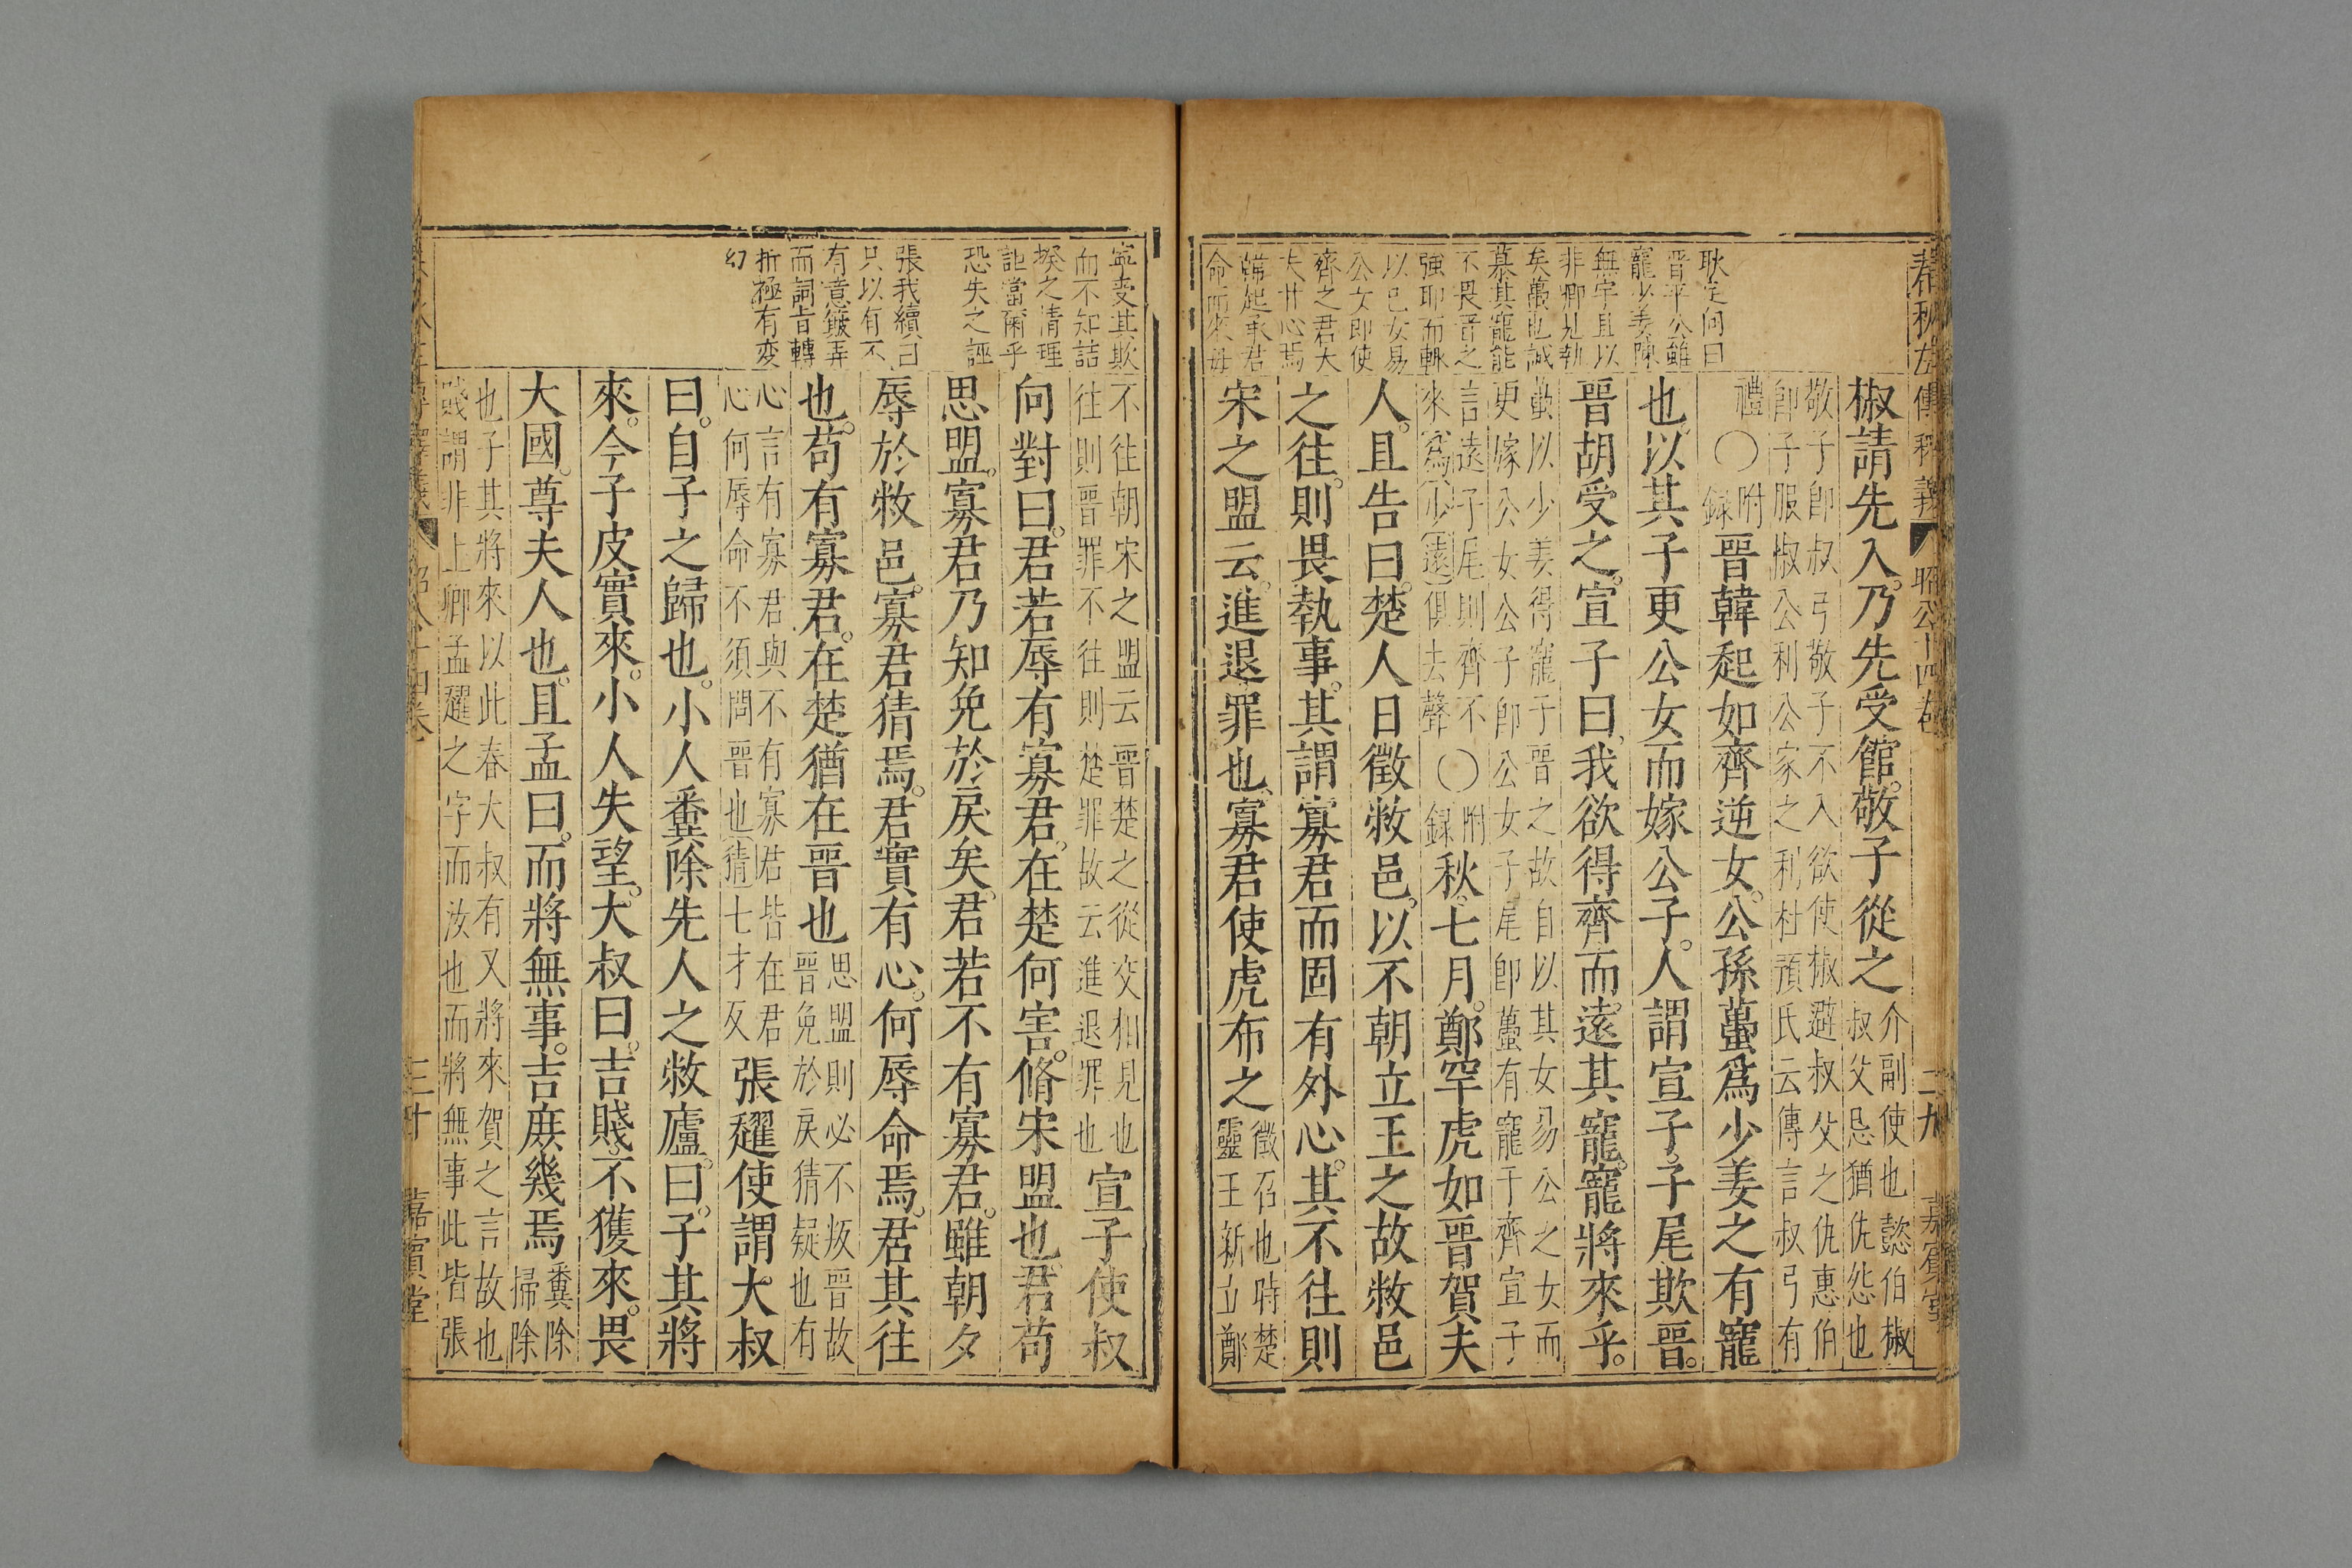 春秋左傳釋義 昭公十四卷 二九 嘉賓堂
耿定向曰
晋平公雖
寵少姜陳
無宇且以
非卿見執
矣蠆也誠
慕其寵能
不畏晋之
強耶而輙
以巳女易
公女即使
齊之君大
夫甘心焉
韓起承君
命而來毋
椒請先入乃先受館敬子從之 介副使也懿伯椒
叔父忌猶仇怨也
敬子即叔弓敬子不入欲使椒避叔父之仇惠伯
即子服椒公利公家之利杜預氏云傳言叔弓有
禮 ○附録 晋韓起如齊逆女公孫蠆爲少姜之有寵
也以其子更公女而嫁公子人謂宣子子尾欺晋
晋胡受之宣子曰我欲得齊而遠其寵寵將來乎
蠆以少姜得寵于晋之故自以其女易公之女而
更嫁公女公子即公女子尾即蠆有寵于齊宣子
言遠子尾則齊不
來爲少遠俱去聲 ○附録 秋七月鄭罕虎如晋賀夫
人且告曰楚人日徵敝邑以不朝立王之故敝邑
之往則畏執事其謂寡君而固有外心其不往則
宋之盟云進退罪也寡君使虎布之 徵召也時楚
靈王新立鄭
寧受其欺
而不知詰
揆之情理
詎當爾乎
恐失之誣
張我續曰
只以有不
有意籤弄
而詞旨轉
折極有変
幻
不往朝宋之盟云晋楚之從交相見也
往則晋罪不往則楚罪故云進退罪也 宣子使叔
向對曰君若辱有寡君在楚何害脩宋盟也君苟
思盟寡君乃知免於戾矣君若不有寡君雖朝夕
辱於敝邑寡君猜焉君實有心何辱命焉君其往
也苟有寡君在楚猶在晋也 思盟則必不叛晋故
晋免於戾猜疑也有
心言有寡君與不有寡君皆在君
心何辱命不須問晋也猜七才反 張趯使謂大叔
曰自子之歸也小人糞除先人之敝廬曰子其將
來今子皮實來小人失望大叔曰吉賤不獲來畏
大國尊夫人也且孟曰而將無事吉庻幾焉 糞除
掃除
也子其將來以此春大叔有又將來賀之言故也
賤謂非上卿孟趯之字而汝也而將無事此皆張
昭公十四卷 三十 嘉賓堂